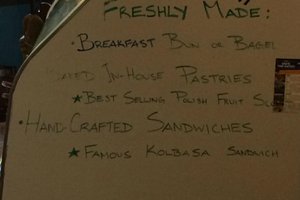 FRESHLY MADE:
• BREAKFAST BUN OR BAGEL
IN-HOUSE PASTRIES
★ BEST SELLING POLISH FRUIT
• HAND-CRAFTED SANDWICHES
★ FAMOUS KOLBASA SANDWICH